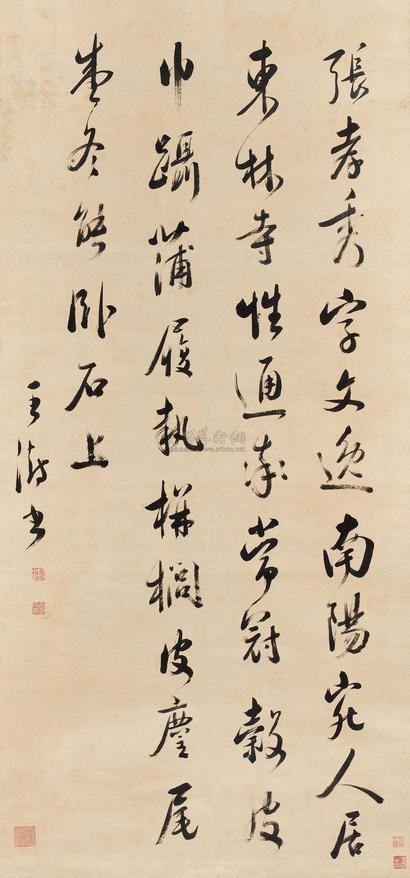 張孝秀字文逸南陽宛人居
東林寺性通率常冠穀皮
巾躡蒲履執栟櫚皮麈尾
盛冬能臥石上
王澍書